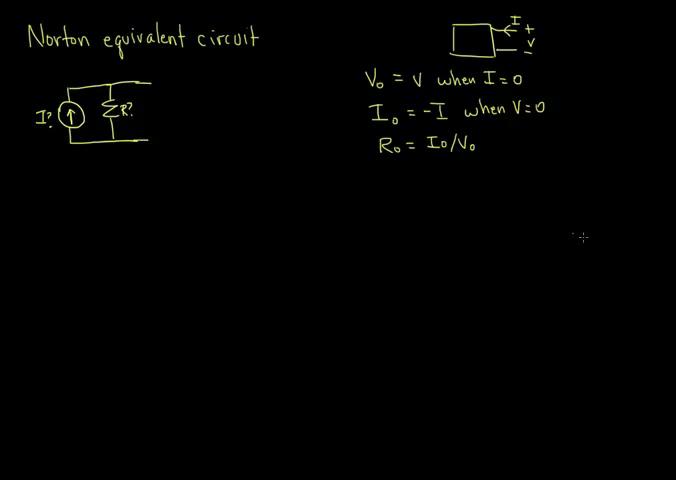 Norton equivalent circuit
I
+
V
-
V₀ = V when I=0
I? R?
I₀ = -I when V=0
R₀ = I₀/V₀